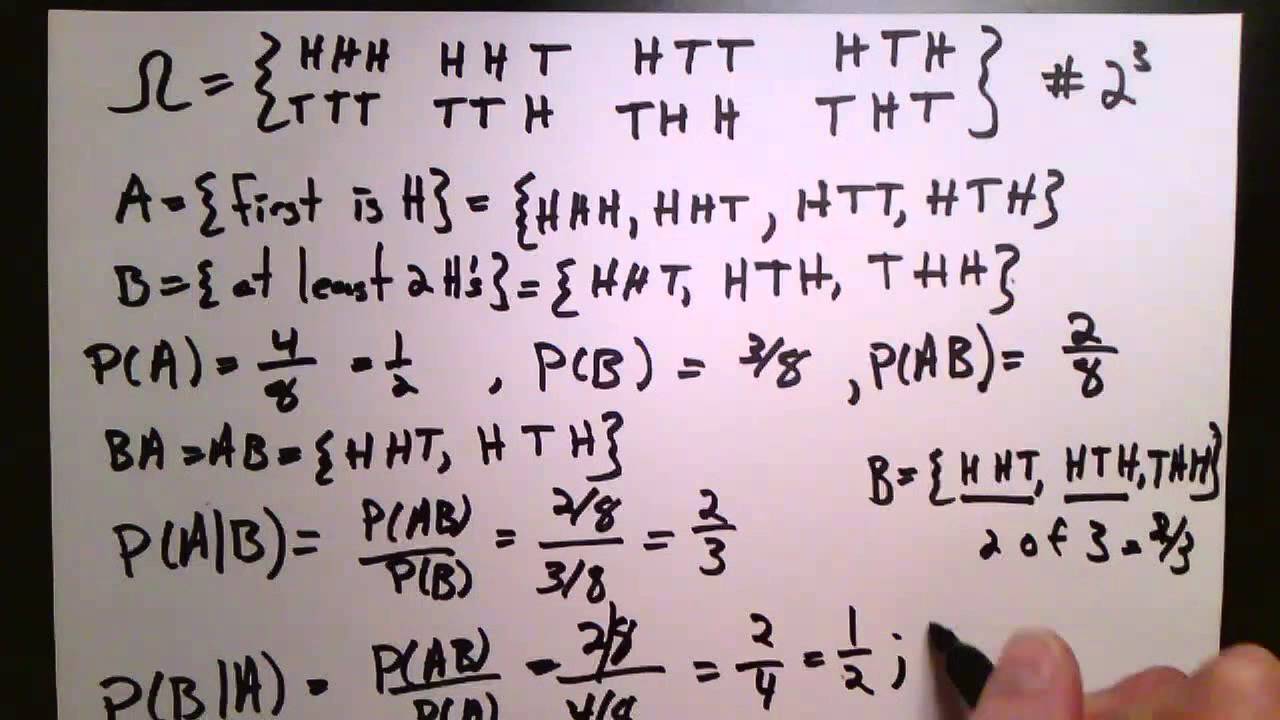 Ω = { HHH HHT HTT HTH
TTT TTH THH THT } # 2³
A = {First is H} = {HHH, HHT, HTT, HTH}
B = {at least 2 H's} = {HHT, HTH, THH}
P(A) = 4/8 = 1/2 , P(B) = 3/8 , P(AB) = 2/8
BA = AB = {HHT, HTH}
B = {HHT, HTH, THH}
2 of 3 = 2/3
P(A|B) = P(AB)/P(B) = (2/8)/(3/8) = 2/3
P(B|A) = P(AB)/P(A) = (2/8)/(4/8) = 2/4 = 1/2 ;